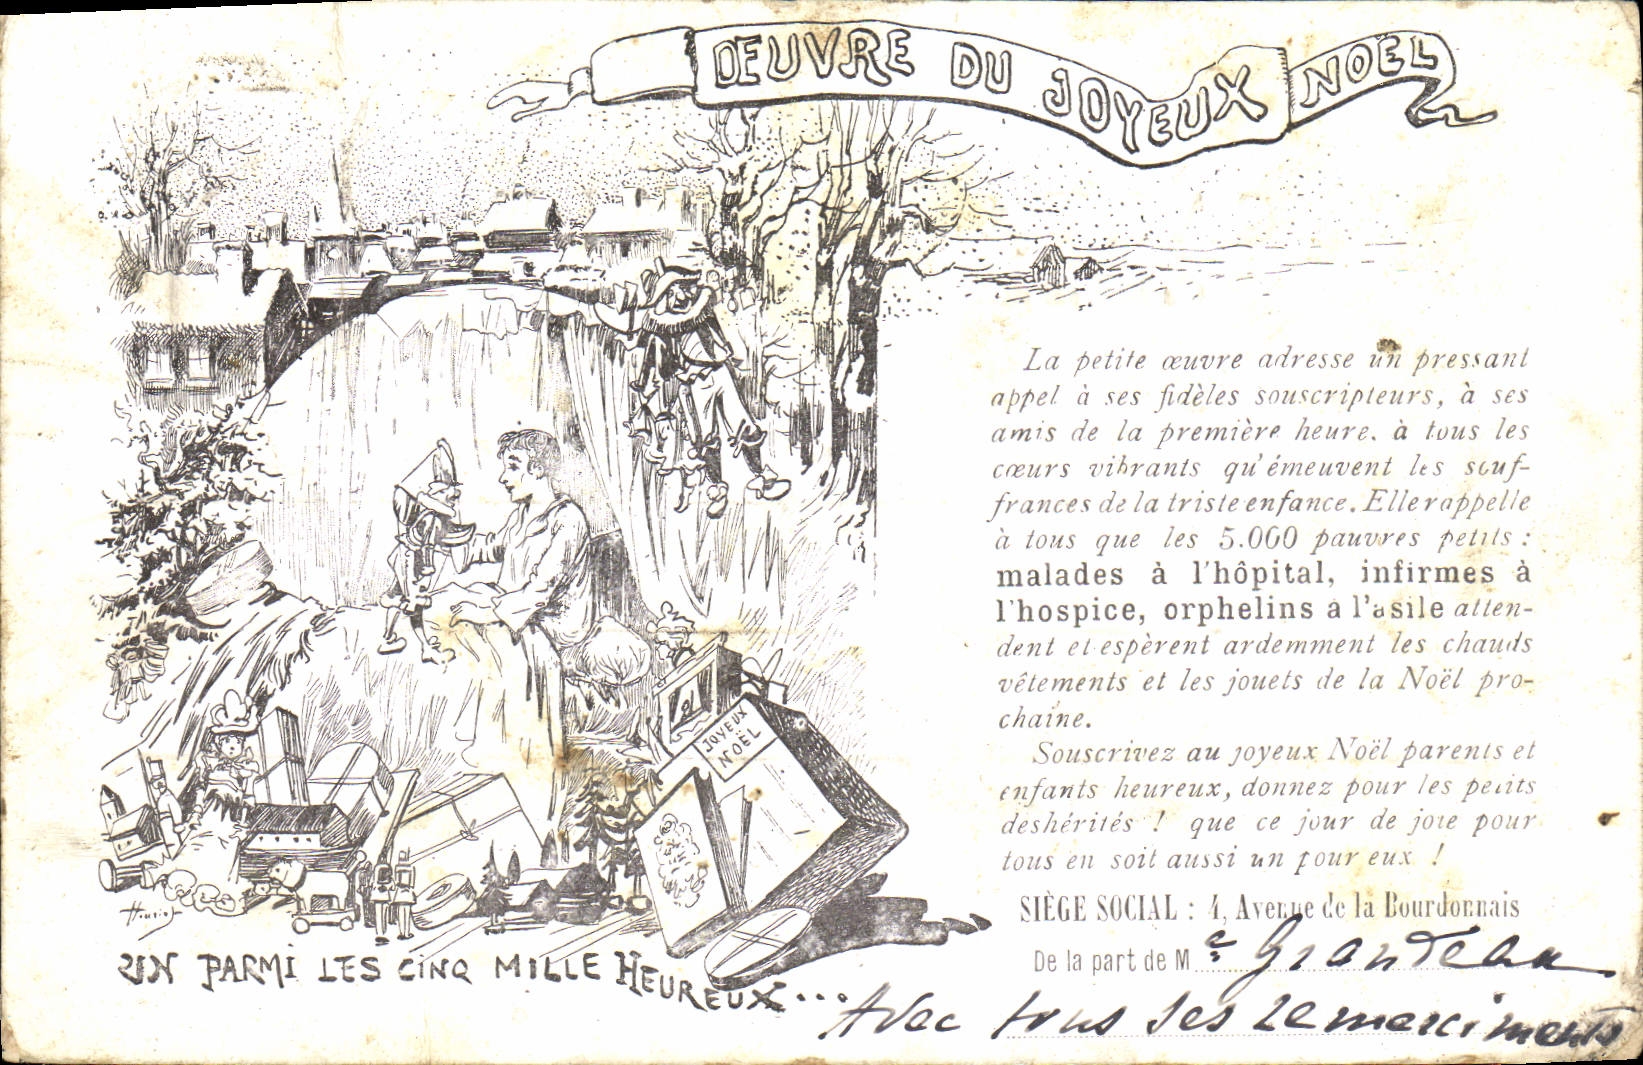 ŒUVRE DU JOYEUX NOËL
La petite œuvre adresse un pressant
appel à ses fidèles souscripteurs, à ses
amis de la première heure, à tous les
cœurs vibrants qu'émeuvent les souf-
frances de la triste enfance. Elle rappelle
à tous que les 5.000 pauvres petits :
malades à l'hôpital, infirmes à
l'hospice, orphelins à l'asile atten-
dent et espèrent ardemment les chauds
vêtements et les jouets de la Noël pro-
chaine.
Souscrivez au joyeux Noël parents et
enfants heureux, donnez pour les petits
deshérités ! que ce jour de joie pour
tous en soit aussi un pour eux !
SIÈGE SOCIAL : 4, Avenue de la Bourdonnais
De la part de Mr Grandeau
Avec tous ses remerciments
JOYEUX
NOËL
Henriot
UN PARMI LES CINQ MILLE HEUREUX...